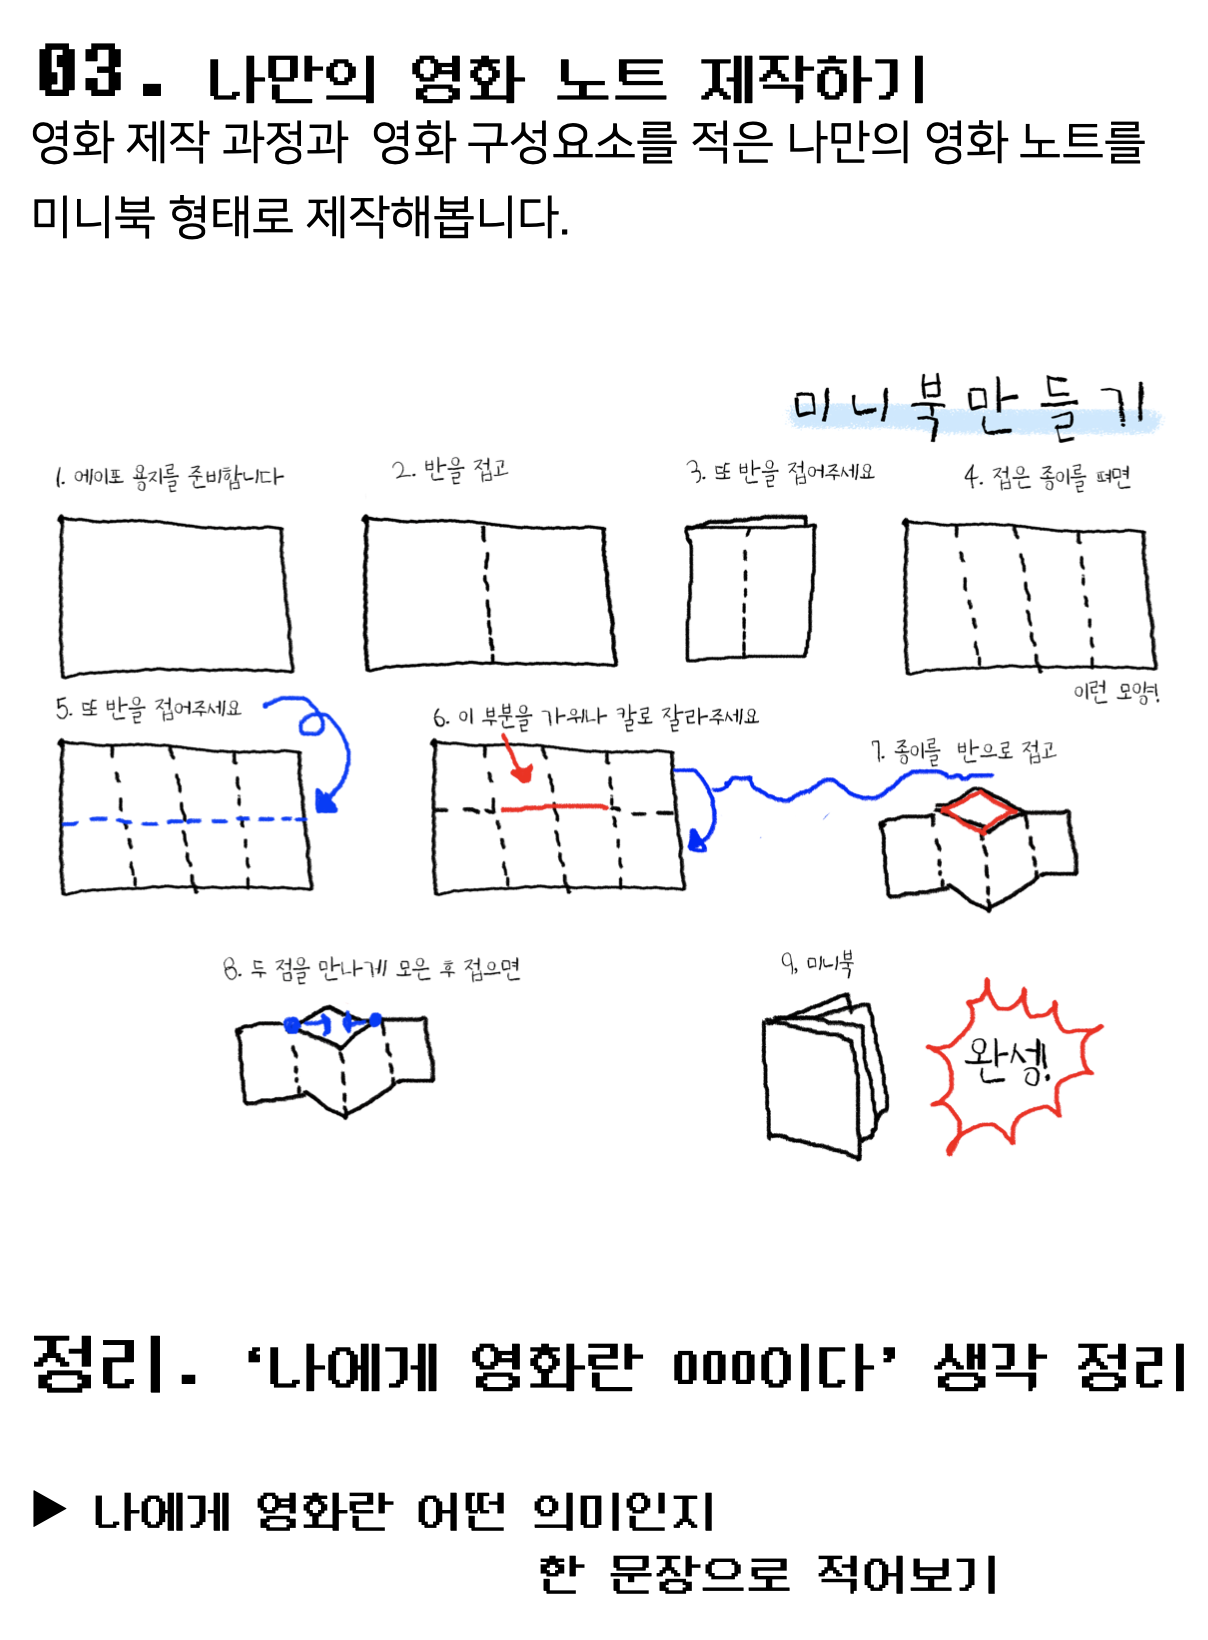 03. 나만의 영화 노트 제작하기
영화 제작 과정과 영화 구성요소를 적은 나만의 영화 노트를
미니북 형태로 제작해봅니다.
미니북만들기
1. 에이포 용지를 준비합니다
2. 반을 접고
3. 또 반을 접어주세요
4. 접은 종이를 펴면
이런 모양!
5. 또 반을 접어주세요
6. 이 부분을 가위나 칼로 잘라주세요
7. 종이를 반으로 접고
8. 두 점을 만나게 모은 후 접으면
9, 미니북
완성!
정리. ‘나에게 영화란 000이다’ 생각 정리
▶ 나에게 영화란 어떤 의미인지
한 문장으로 적어보기